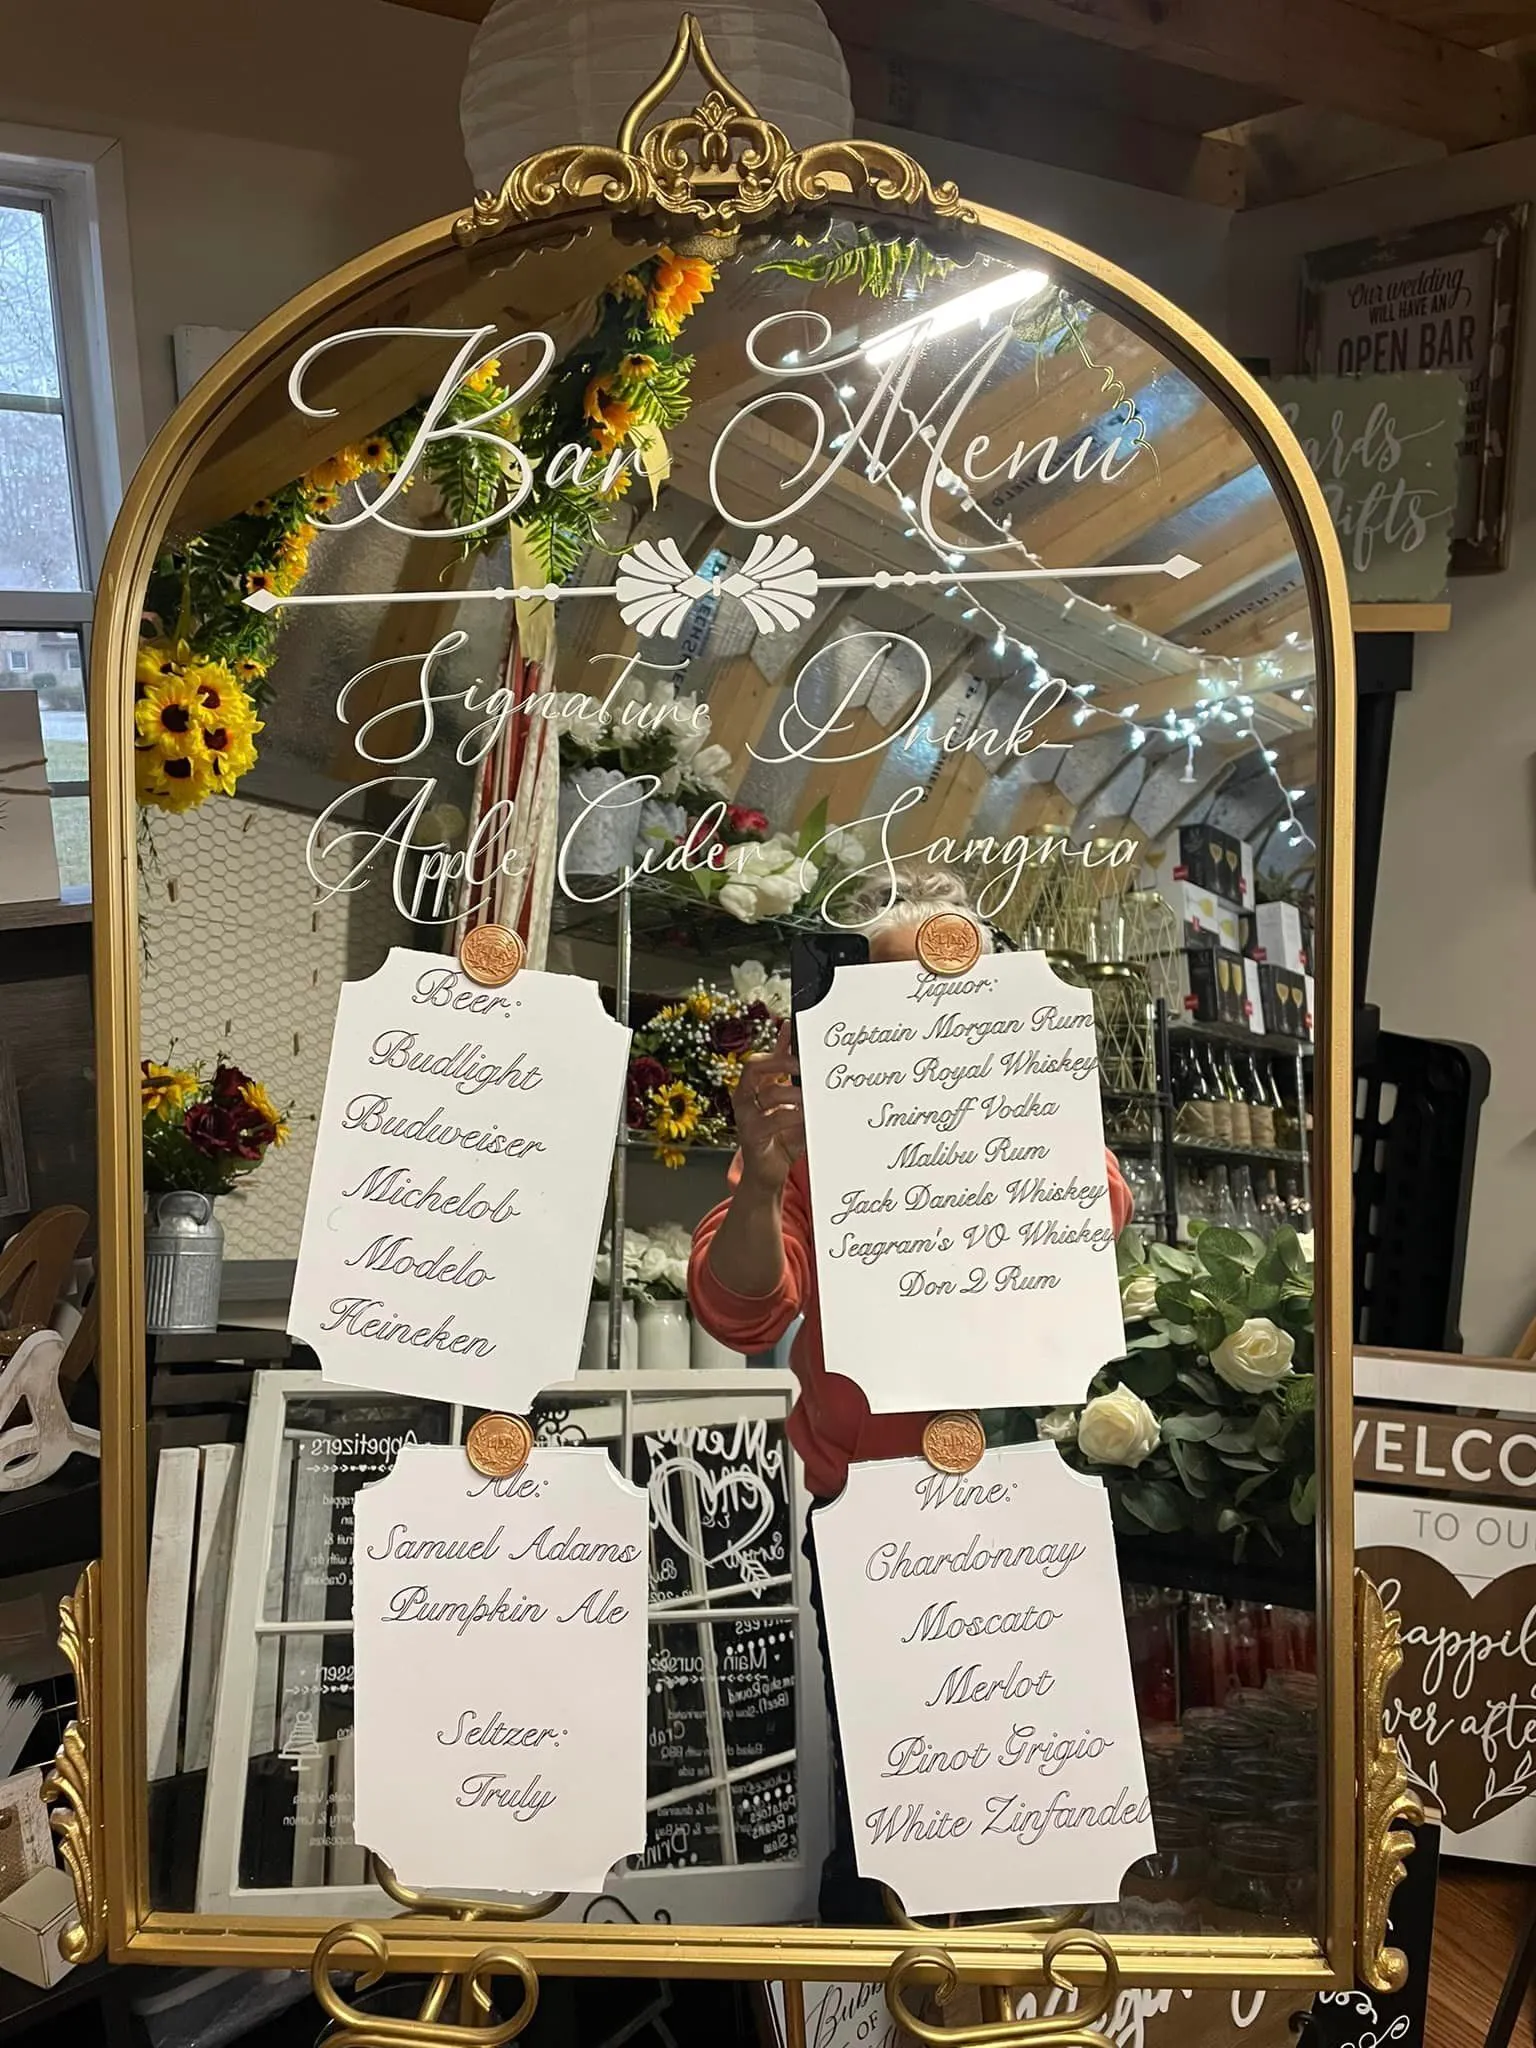 Bar Menu
Signature Drink
Apple Cider Sangria
Beer:
Budlight
Budweiser
Michelob
Modelo
Heineken
Liquor:
Captain Morgan Rum
Crown Royal Whiskey
Smirnoff Vodka
Malibu Rum
Jack Daniels Whiskey
Seagram's VO Whiskey
Don Q Rum
Ale:
Samuel Adams
Pumpkin Ale
Seltzer:
Truly
Wine:
Chardonnay
Moscato
Merlot
Pinot Grigio
White Zinfandel
Our wedding
WILL HAVE AN
OPEN BAR
ards
ifts
VELCO
TO OU
appil
ver afte
Appetizers
Menu
Main Course
Crab
Drink
OF